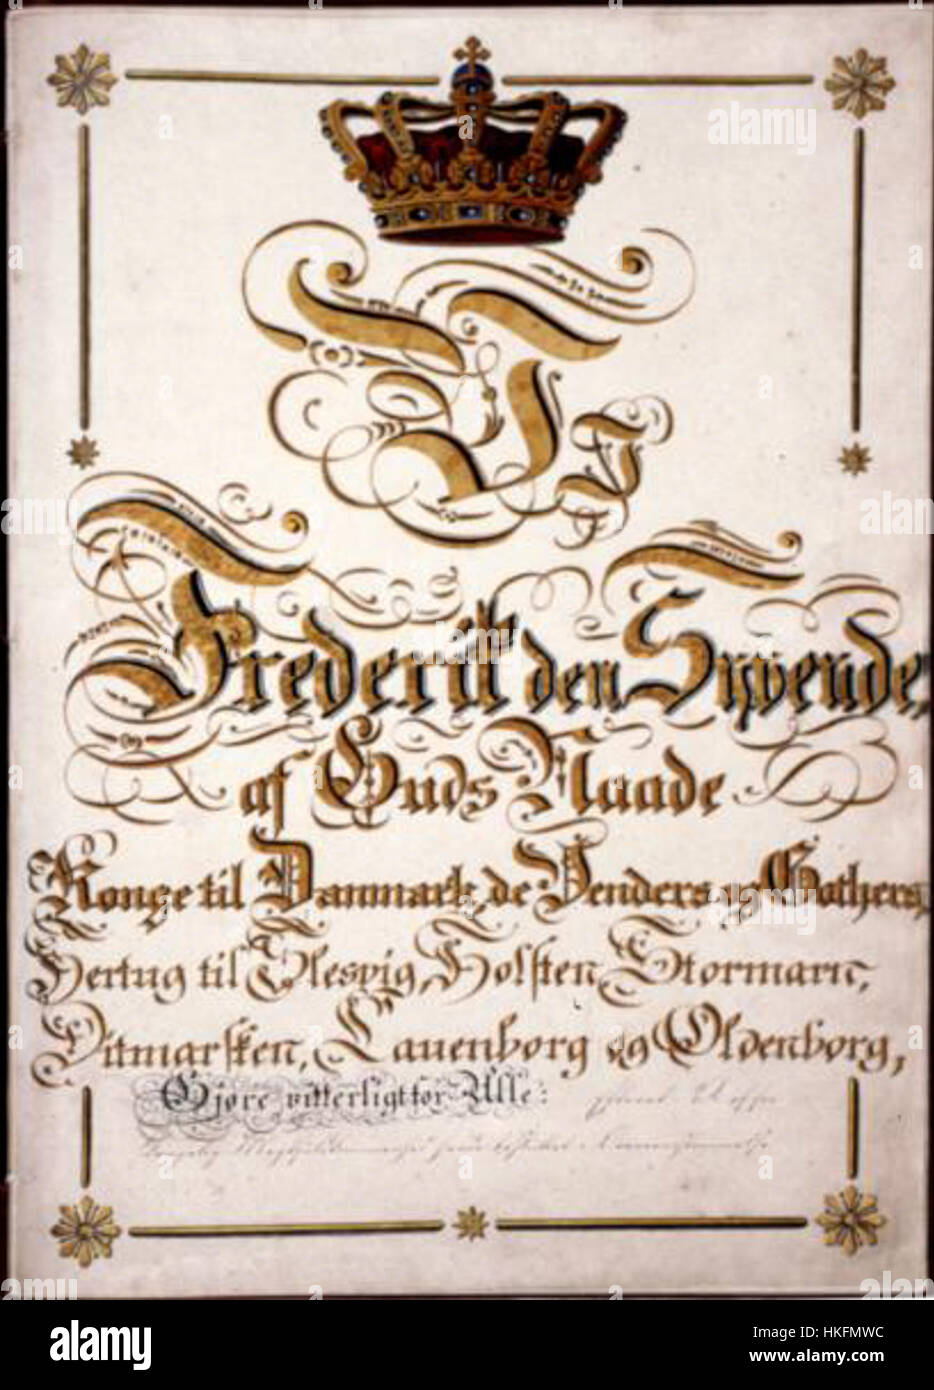 Frederik den Syvende,
af Guds Naade
Konge til Danmark, de Venders og Gothers,
Hertug til Slesvig, Holsten, Stormarn,
Ditmarsken, Lauenborg og Oldenborg,
Gjøre vitterligt for Alle:
alamy
alamy stock photo
HKFMWC
www.alamy.com